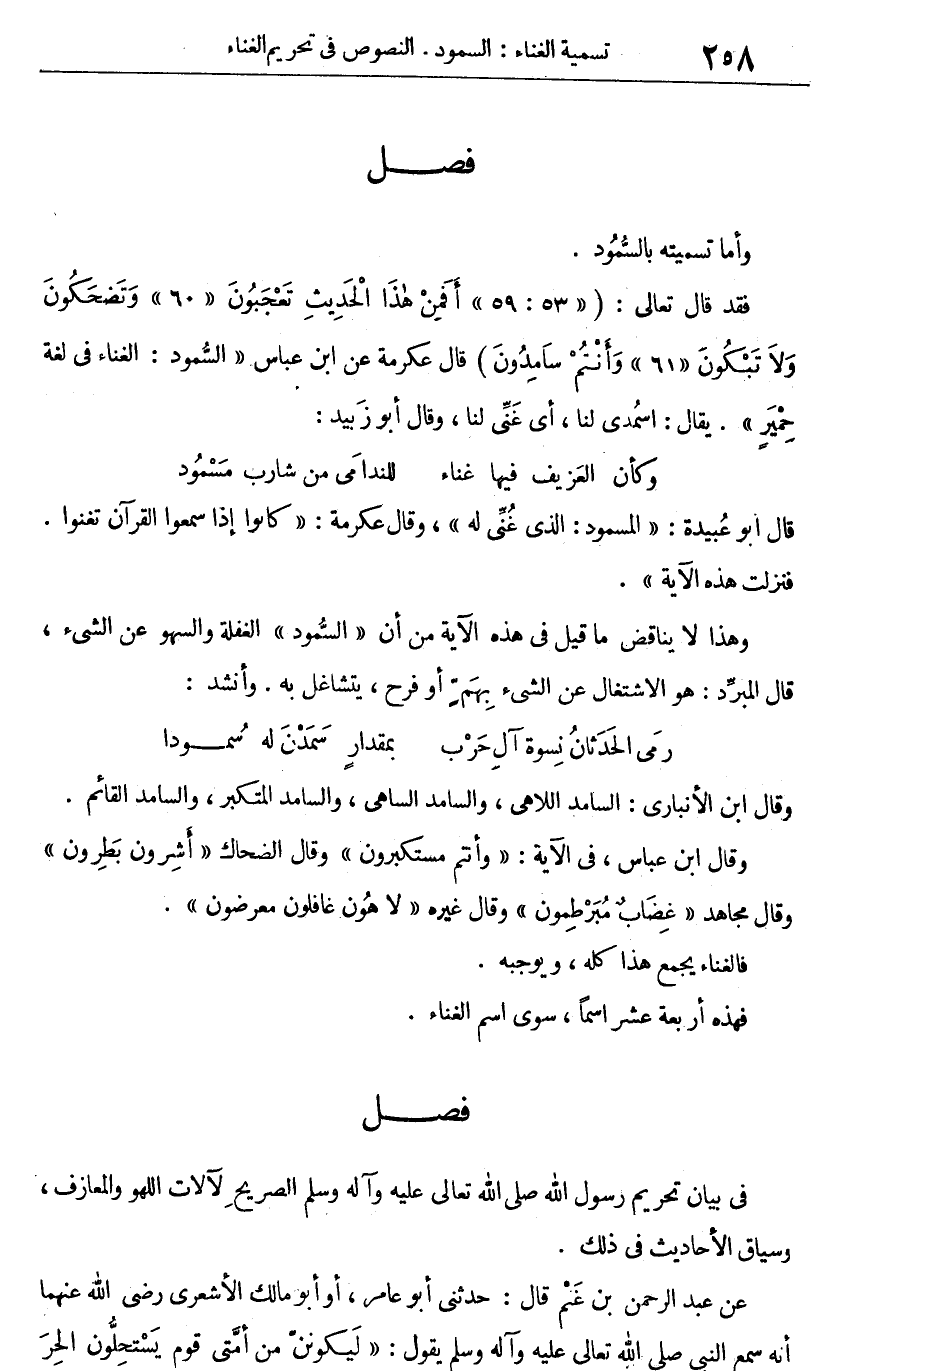 ٢٥٨ تسمية الغناء : السمود . النصوص فى تحريم الغناء
فصـــــل
وأما تسميته بالسُّمُود .
فقد قال تعالى : ( « ٥٣ : ٥٩ » أَفَمِنْ هٰذَا الْحَدِيثِ تَعْجَبُونَ « ٦٠ » وَتَضحَكُونَ
وَلاَ تَبْكُونَ «٦١ » وَأَنْتُمْ سَامِدُونَ ) قال عكرمة عن ابن عباس « السُّمود : الغناء فى لغة
حِمْيَرٍ » . يقال : اسمُدى لنا ، أى غَنِّى لنا ، وقال أبو زَبيد :
وكأن العَزيف فيها غناء للندامَى من شارب مَسْمُود
قال أبو عُبيدة : « المسمود : الذى غُنِّى له » ، وقال عكرمة : « كانوا إذا سمعوا القرآن تغنوا .
فنزلت هذه الآية » .
وهذا لا يناقض ما قيل فى هذه الآية من أن « السُّمود » الغفلة والسهو عن الشىء ،
قال المبرِّد : هو الاشتغال عن الشىء بِهَمٍّ أو فرح ، يتشاغل به . وأنشد :
رمَى الحَدَثانُ نِسوة آلِ حَرْب بمقدارٍ سَمَدْنَ له سُمـــودا
وقال ابن الأنبارى : السامد اللاهى ، والسامد الساهى ، والسامد المتكبر ، والسامد القائم .
وقال ابن عباس ، فى الآية : « وأنتم مستكبرون » وقال الضحاك « أَشِرون بَطِرون »
وقال مجاهد « غِضَابٌ مُبَرْطِمون » وقال غيره « لا هُون غافلون معرضون » .
فالغناء يجمع هذا كله ، ويوجبه .
فهذه أربعة عشر اسماً ، سوى اسم الغناء .
فصـــــل
فى بيان تحريم رسول الله صلى الله تعالى عليه وآله وسلم الصريحِ لآلات اللهو والمعازف ،
وسياق الأحاديث فى ذلك .
عن عبد الرحمن بن غَنْم قال : حدثنى أبو عامر ، أو أبو مالك الأشعرى رضى الله عنهما
أنه سمع النبى صلى الله تعالى عليه وآله وسلم يقول : « لَيكوننّ من أمَّتى قوم يَسْتحِلُّون الحِرَ